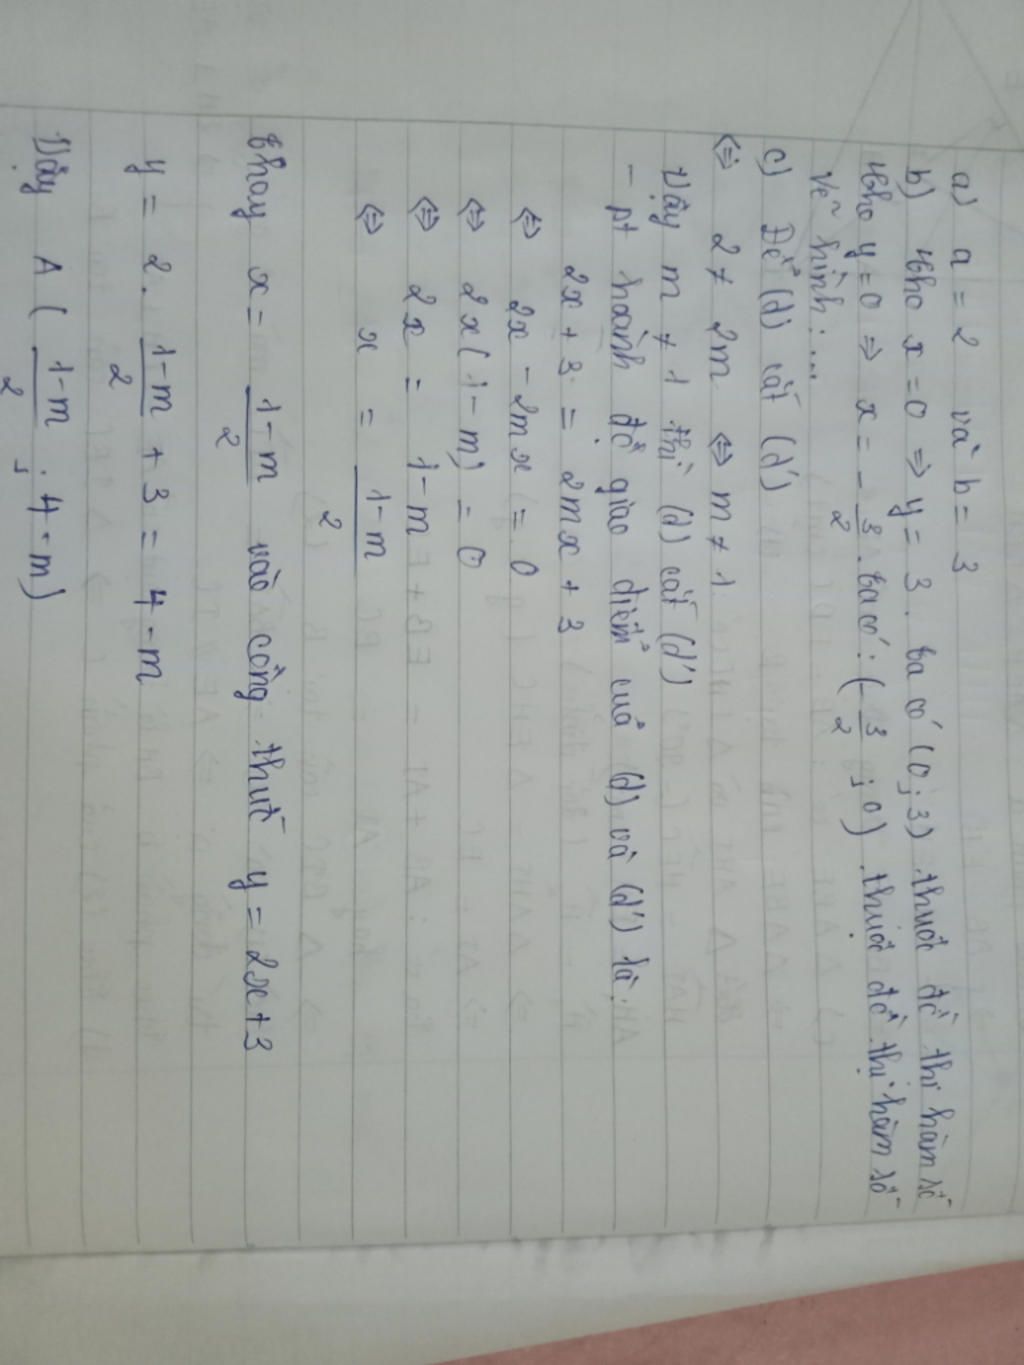 a) a = 2 và b = 3
b) cho x = 0 => y = 3. Ta có (0; 3) thuộc đồ thị hàm số
cho y = 0 => x = -3/2. Ta có: (-3/2; 0) thuộc đồ thị hàm số
Vẽ hình: ...
c) Để (d) cắt (d')
<=> 2 ≠ 2m <=> m ≠ 1.
Vậy m ≠ 1 thì (d) cắt (d')
- pt hoành độ giao điểm của (d) và (d') là:
2x + 3 = 2mx + 3
<=> 2x - 2mx = 0
<=> 2x(1-m) = 0
<=> 2x = 1-m
<=> x = (1-m)/2
thay x = (1-m)/2 vào công thức y = 2x+3
y = 2. (1-m)/2 + 3 = 4 - m
Vậy A ((1-m)/2; 4-m)